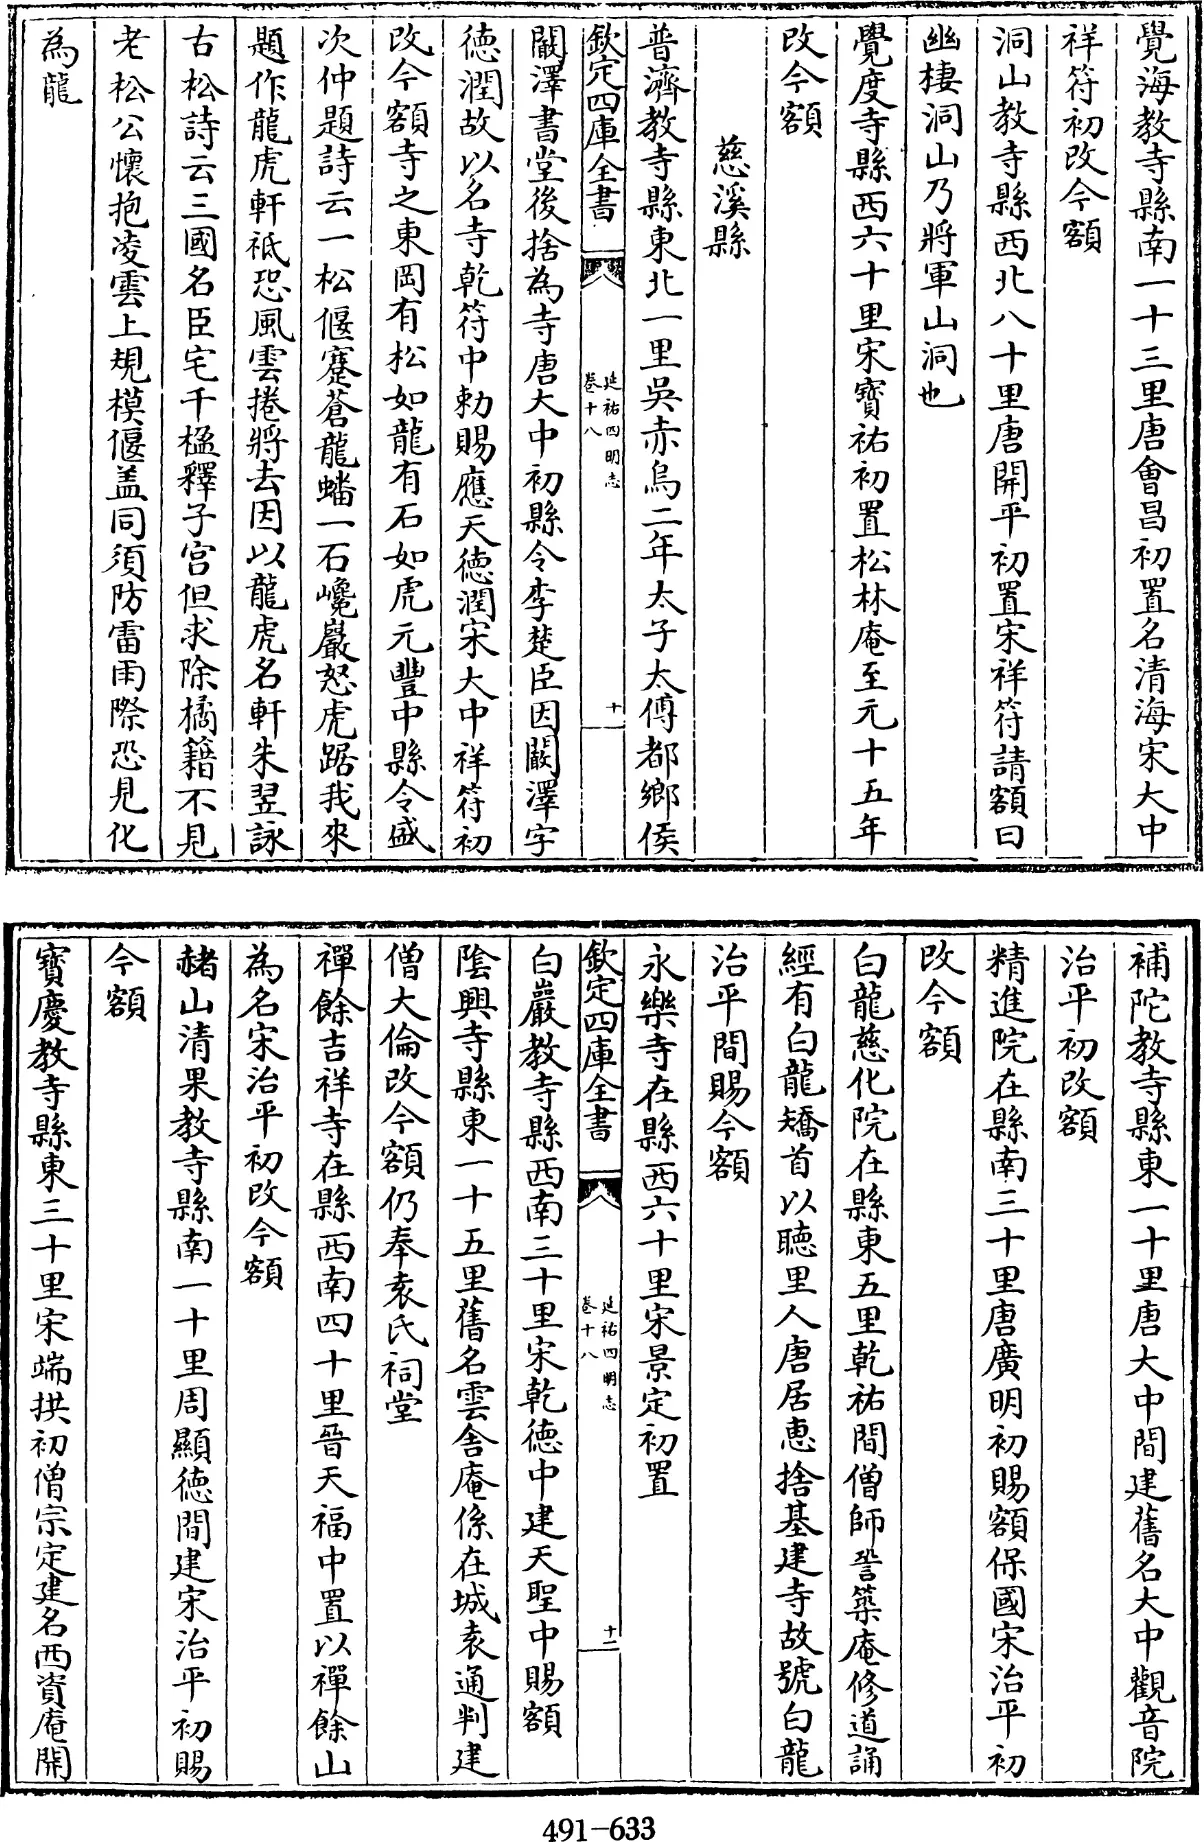 覺海教寺縣南一十三里唐會昌初置名清海宋大中
祥符初改今額
洞山教寺縣西北八十里唐開平初置宋祥符請額曰
幽棲洞山乃將軍山洞也
覺度寺縣西六十里宋寳祐初置松林庵至元十五年
改今額
慈溪縣
普濟教寺縣東北一里吳赤烏二年太子太傅都鄉侯
欽定四庫全書
延祐四明志
卷十八
十
闞澤書堂後捨為寺唐大中初縣令李楚臣因闞澤字
徳潤故以名寺乾符中勅賜應天徳潤宋大中祥符初
改今額寺之東岡有松如龍有石如虎元豐中縣令盛
次仲題詩云一松偃蹇蒼龍蟠一石巉巖怒虎踞我來
題作龍虎軒袛恐風雲捲將去因以龍虎名軒朱翌詠
古松詩云三國名臣宅千楹釋子宫但求除橘籍不見
老松公懷抱凌雲上規模偃盖同須防雷雨際恐見化
為龍
補陀教寺縣東一十里唐大中間建舊名大中觀音院
治平初改額
精進院在縣南三十里唐廣明初賜額保國宋治平初
改今額
白龍慈化院在縣東五里乾祐間僧師詧築庵修道誦
經有白龍矯首以聽里人唐居惠捨基建寺故號白龍
治平間賜今額
永樂寺在縣西六十里宋景定初置
欽定四庫全書
延祐四明志
卷十八
十一
白巖教寺縣西南三十里宋乾徳中建天聖中賜額
隂興寺縣東一十五里舊名雲舍庵係在城袁通判建
僧大倫改今額仍奉袁氏祠堂
禪餘吉祥寺在縣西南四十里晉天福中置以禪餘山
為名宋治平初改今額
赭山清果教寺縣南一十里周顯徳間建宋治平初賜
今額
寳慶教寺縣東三十里宋端拱初僧宗定建名西資庵開
491-633